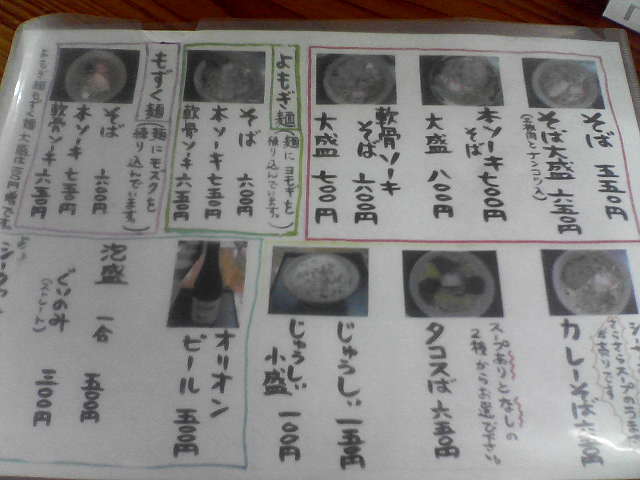 そば 五五〇円
そば大盛 六五〇円
本ソーキそば 七〇〇円
大盛 八〇〇円
軟骨ソーキそば 六〇〇円
大盛 七〇〇円
よもぎ麺
(麺にヨモギを
練り込んでいます。)
そば 六〇〇円
本ソーキ 七五〇円
軟骨ソーキ 六五〇円
もずく麺
(麺にモズクを
練り込んでいます。)
そば 六〇〇円
本ソーキ 七五〇円
軟骨ソーキ 六五〇円
カレーそば 六五〇円
スープありとなしの
2種からお選び下さい。
タコスば 六五〇円
じゅうしい 一五〇円
じゅうしい
小盛 一〇〇円
オリオン
ビール 五〇〇円
泡盛 一合 五〇〇円
ぐい呑み 三〇〇円
(ストレート)